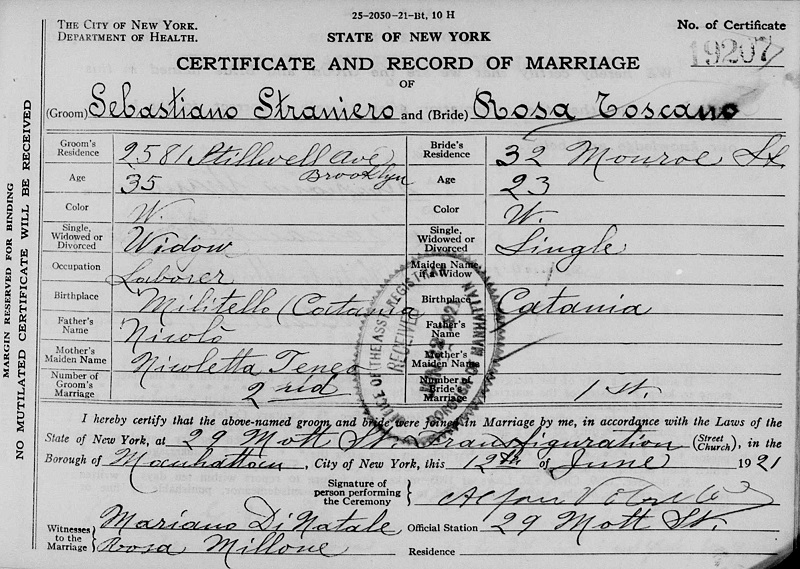 25-2050-21-Bt, 10 H
THE CITY OF NEW YORK.
DEPARTMENT OF HEALTH.
STATE OF NEW YORK
No. of Certificate
19207
CERTIFICATE AND RECORD OF MARRIAGE
OF
(Groom) Sebastiano Straniero and (Bride) Rosa Toscano
Groom's Residence 2581 Stillwell Ave Brooklyn Bride's Residence 32 Monroe St.
Age 35 Age 23
Color W. Color W.
Single, Widowed or Divorced Widow Single, Widowed or Divorced Single
Occupation Laborer Maiden Name, if a Widow
Birthplace Militello (Catania Birthplace Catania
Father's Name Nicolò Father's Name
Mother's Maiden Name Nicoletta Mother's Maiden Name
Number of Groom's Marriage 2nd Number of Bride's Marriage 1 st.
I hereby certify that the above-named groom and bride were joined in Marriage by me, in accordance with the Laws of the
State of New York, at 29 Mott St. Transfiguration (Street Church), in the
Borough of Manhattan, City of New York, this 12th of June 1921
Signature of person performing the Ceremony
Witnesses to the Marriage Mariano Di Natale Official Station 29 Mott St.
Rosa Millone Residence
MARGIN RESERVED FOR BINDING
NO MUTILATED CERTIFICATE WILL BE RECEIVED
OFFICE OF THE ASS. REGISTRAR
RECEIVED
BOROUGH OF MANHATTAN